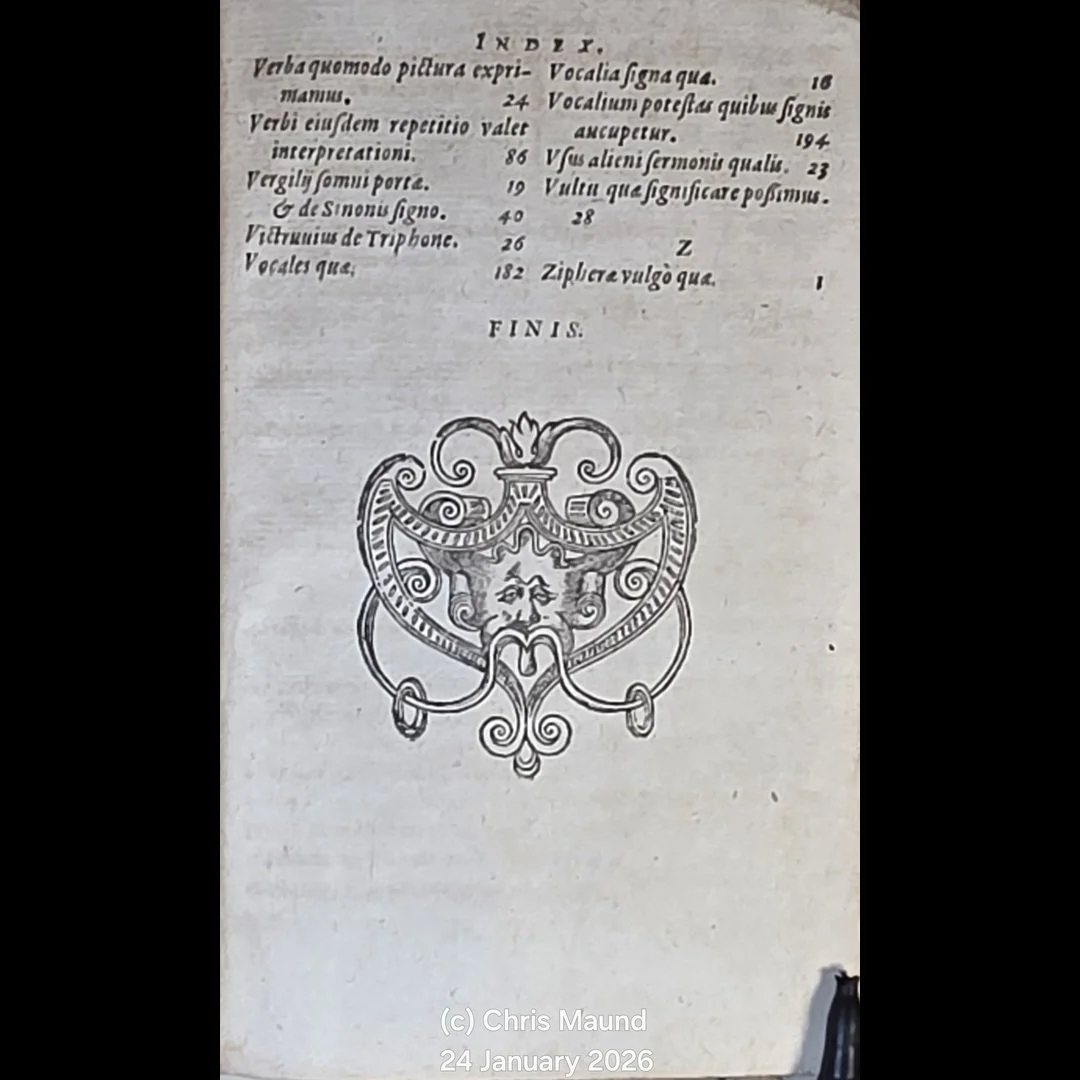 INDEX.
Verba quomodo pictura expri-
mamus. 24
Verbi eiuſdem repetitio valet
interpretationi. 86
Vergilij ſomni portæ. 19
& de Sinonis ſigno. 40
Victruuius de Triphone. 26
Vocales quæ. 182
Vocalia ſigna quæ. 16
Vocalium poteſtas quibus ſignis
aucupetur. 194
Vſus alieni ſermonis qualis. 23
Vultu quæ ſignificare poſſimus.
28
Z
Zipheræ vulgò quæ. 1
FINIS.
(c) Chris Maund
24 January 2026